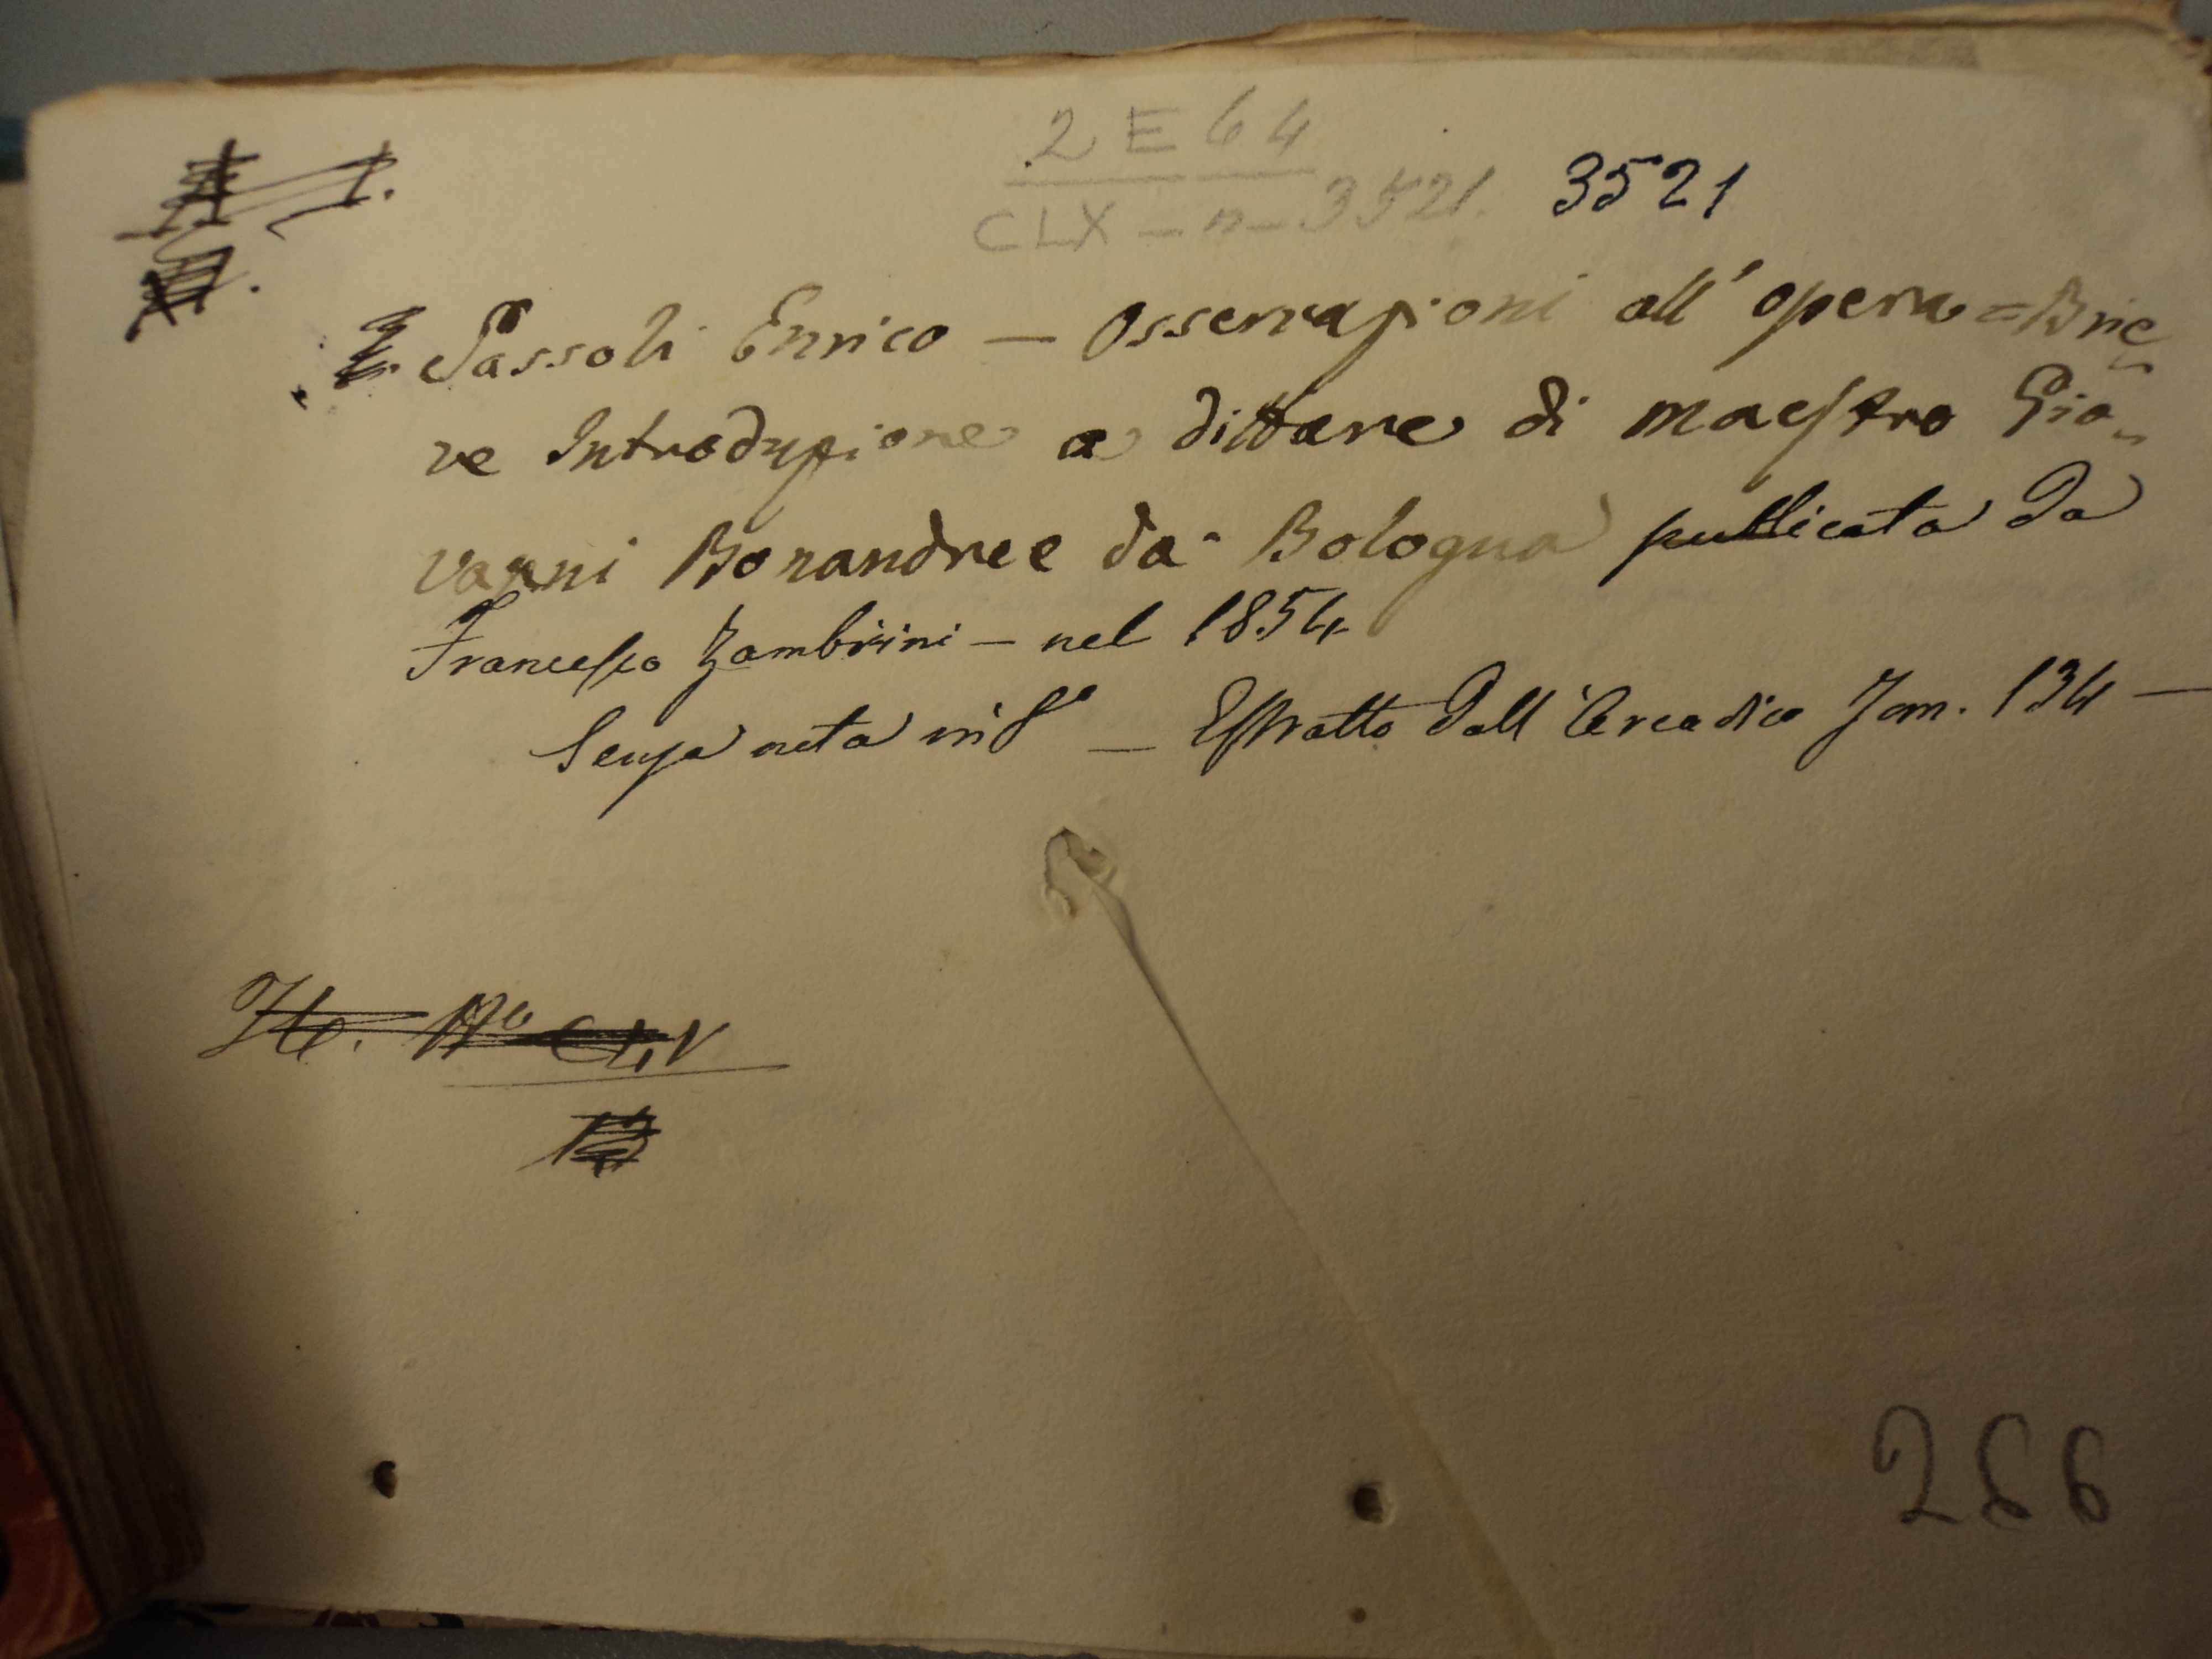 2 E 64
CLX - n - 3521. 3521
Sassoli Enrico — Osservazioni all'opera = Brie
ve Introduzione a dittare di maestro Gio
vanni Bonandree da Bologna pubblicata da
Francesco Zambrini — nel 1854
Senza nota in 8° — Estratto dall'Arcadico Tom. 134 —
266